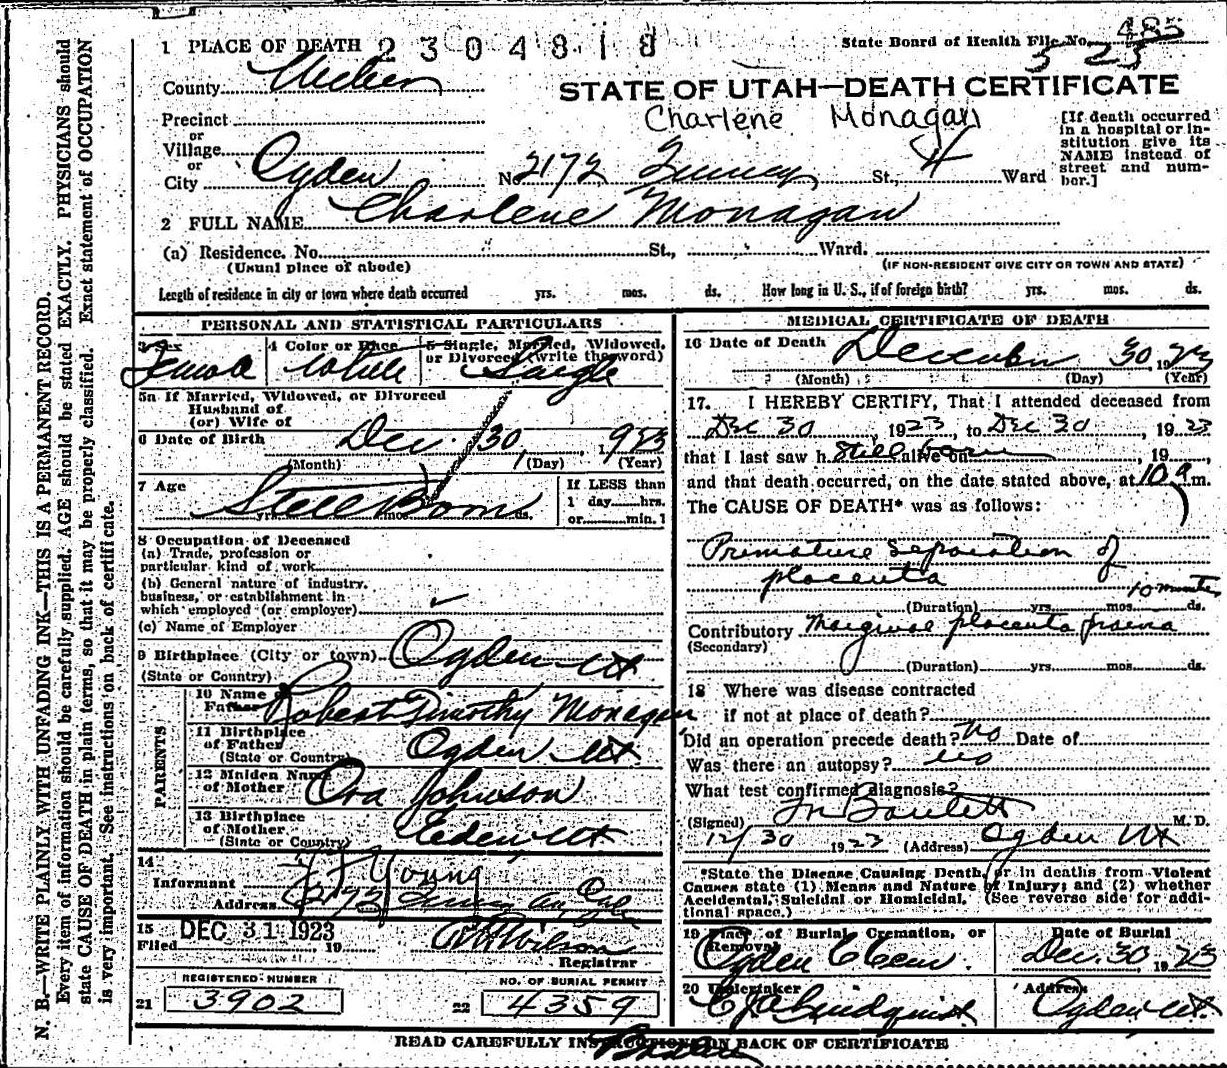 1 PLACE OF DEATH 2304818
State Board of Health File No. 485
3 23
County Weber
STATE OF UTAH—DEATH CERTIFICATE
Charlene Monagan
Precinct
or
Village
or
City Ogden No 2172 Quincy St., 4 Ward
[If death occurred
in a hospital or in-
stitution give its
NAME instead of
street and num-
ber.]
2 FULL NAME Charlene Monagan
(a) Residence. No. St., Ward.
(Usual place of abode) (IF NON-RESIDENT GIVE CITY OR TOWN AND STATE)
Length of residence in city or town where death occurred yrs. mos. ds. How long in U. S., if of foreign birth? yrs. mos. ds.
PERSONAL AND STATISTICAL PARTICULARS
3 Sex 4 Color or Race 5 Single, Married, Widowed,
or Divorced (write the word)
Female white Single
5a If Married, Widowed, or Divorced
Husband of
(or) Wife of
6 Date of Birth Dec. 30, 1923
(Month) (Day) (Year)
7 Age Still Born
yrs. mos. ds.
If LESS than
1 day hrs.
or min.
8 Occupation of Deceased
(a) Trade, profession or
particular kind of work
(b) General nature of industry,
business, or establishment in
which employed (or employer)
(c) Name of Employer
9 Birthplace (City or town) Ogden Ut
(State or Country)
PARENTS
10 Name of
Father Robert Timothy Monagan
11 Birthplace
of Father Ogden Ut
(State or Country)
12 Maiden Name
of Mother Ora Johnson
13 Birthplace
of Mother Eden, Ut
(State or Country)
14
Informant Young
Address 2172 Quincy
15 DEC 31 1923
Filed 19 Wilson
Registrar
REGISTERED NUMBER NO. OF BURIAL PERMIT
21 3902 22 4359
MEDICAL CERTIFICATE OF DEATH
16 Date of Death December 30, 1923
(Month) (Day) (Year)
17. I HEREBY CERTIFY, That I attended deceased from
Dec 30, 1923, to Dec 30, 1923
that I last saw h Still born alive on , 19
and that death occurred, on the date stated above, at 10 a m.
The CAUSE OF DEATH* was as follows:
Premature separation of
placenta
10 minutes
(Duration) yrs. mos. ds.
Contributory Marginal placenta praevia
(Secondary)
(Duration) yrs. mos. ds.
18 Where was disease contracted
if not at place of death?
Did an operation precede death? No Date of
Was there an autopsy? No
What test confirmed diagnosis?
(Signed) Bartlett M. D.
12/30 1923 (Address) Ogden Ut
*State the Disease Causing Death, or in deaths from Violent
Causes state (1) Means and Nature of Injury; and (2) whether
Accidental, Suicidal or Homicidal. (See reverse side for addi-
tional space.)
19 Place of Burial, Cremation, or
Removal
Date of Burial
Ogden Cem. Dec. 30, 1923
20 Undertaker Address
Lindquist Ogden Ut.
READ CAREFULLY INSTRUCTIONS ON BACK OF CERTIFICATE
N. B.—WRITE PLAINLY WITH UNFADING INK—THIS IS A PERMANENT RECORD.
Every item of information should be carefully supplied. AGE should be stated EXACTLY. PHYSICIANS should
state CAUSE OF DEATH in plain terms, so that it may be properly classified. Exact statement of OCCUPATION
is very important. See instructions on back of certificate.